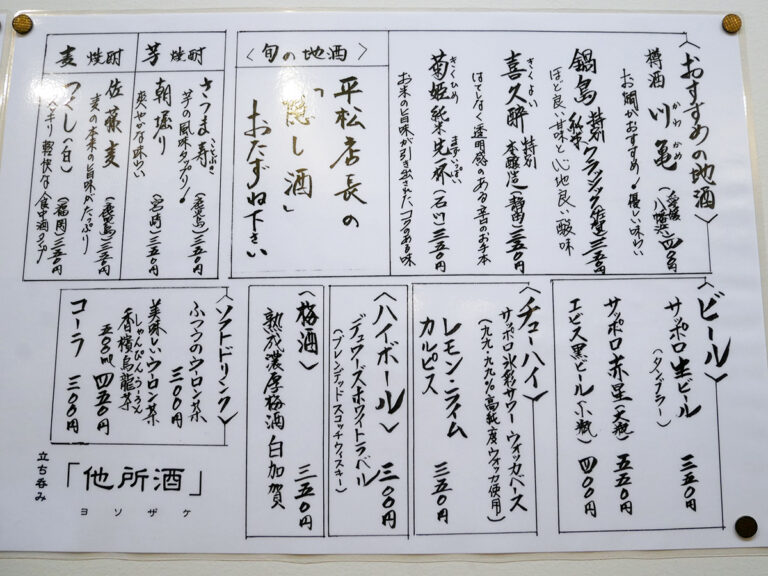 〈おすすめの地酒〉
樽酒 川亀 (愛媛 八幡浜) 四〇〇円
かわ かめ
お燗がおすすめ!優しい味わい
鍋島 特別純米 クラシック(佐賀)三五〇円
ほど良い甘味と心地良い酸味
喜久酔 特別本醸造(静岡)三五〇円
きくよい
はてなく透明感のある辛口のお手本
菊姫 純米 先一杯(石川)三五〇円
きくひめ まずいっぱい
お米の旨味が引き出された、コクのある味
〈旬の地酒〉
平松店長の
「隠し酒」
おたずね下さい
芋焼酎
さつま寿(鹿児島)三五〇円
ことぶき
芋の風味タップリ!
朝堀り(宮崎)三五〇円
爽やかな味わい
麦焼酎
佐藤麦(鹿児島)三五〇円
麦の本来の旨味がたっぷり
つくし(白)(福岡)三五〇円
スッキリ軽快な食中酒タイプ
〈ビール〉
サッポロ生ビール 三五〇円
(タンブラー)
サッポロ赤星(大瓶) 五五〇円
エビス黒ビール(小瓶) 四〇〇円
〈チューハイ〉
サッポロ氷彩サワー ウォッカベース
(九九.九九%高純度ウォッカ使用)
レモン・ライム 三五〇円
カルピス
〈ハイボール〉 三〇〇円
デュワーズホワイトラベル
(ブレンデッドスコッチウィスキー)
〈梅酒〉
熟成濃厚梅酒 白加賀 三五〇円
〈ソフトドリンク〉
ふつうのウーロン茶
三〇〇円
美味しいウーロン茶
しゃんぴんうーろん
香檳烏龍茶
五〇〇ml 四五〇円
コーラ 三〇〇円
立ち呑み
「他所酒」
ヨソザケ